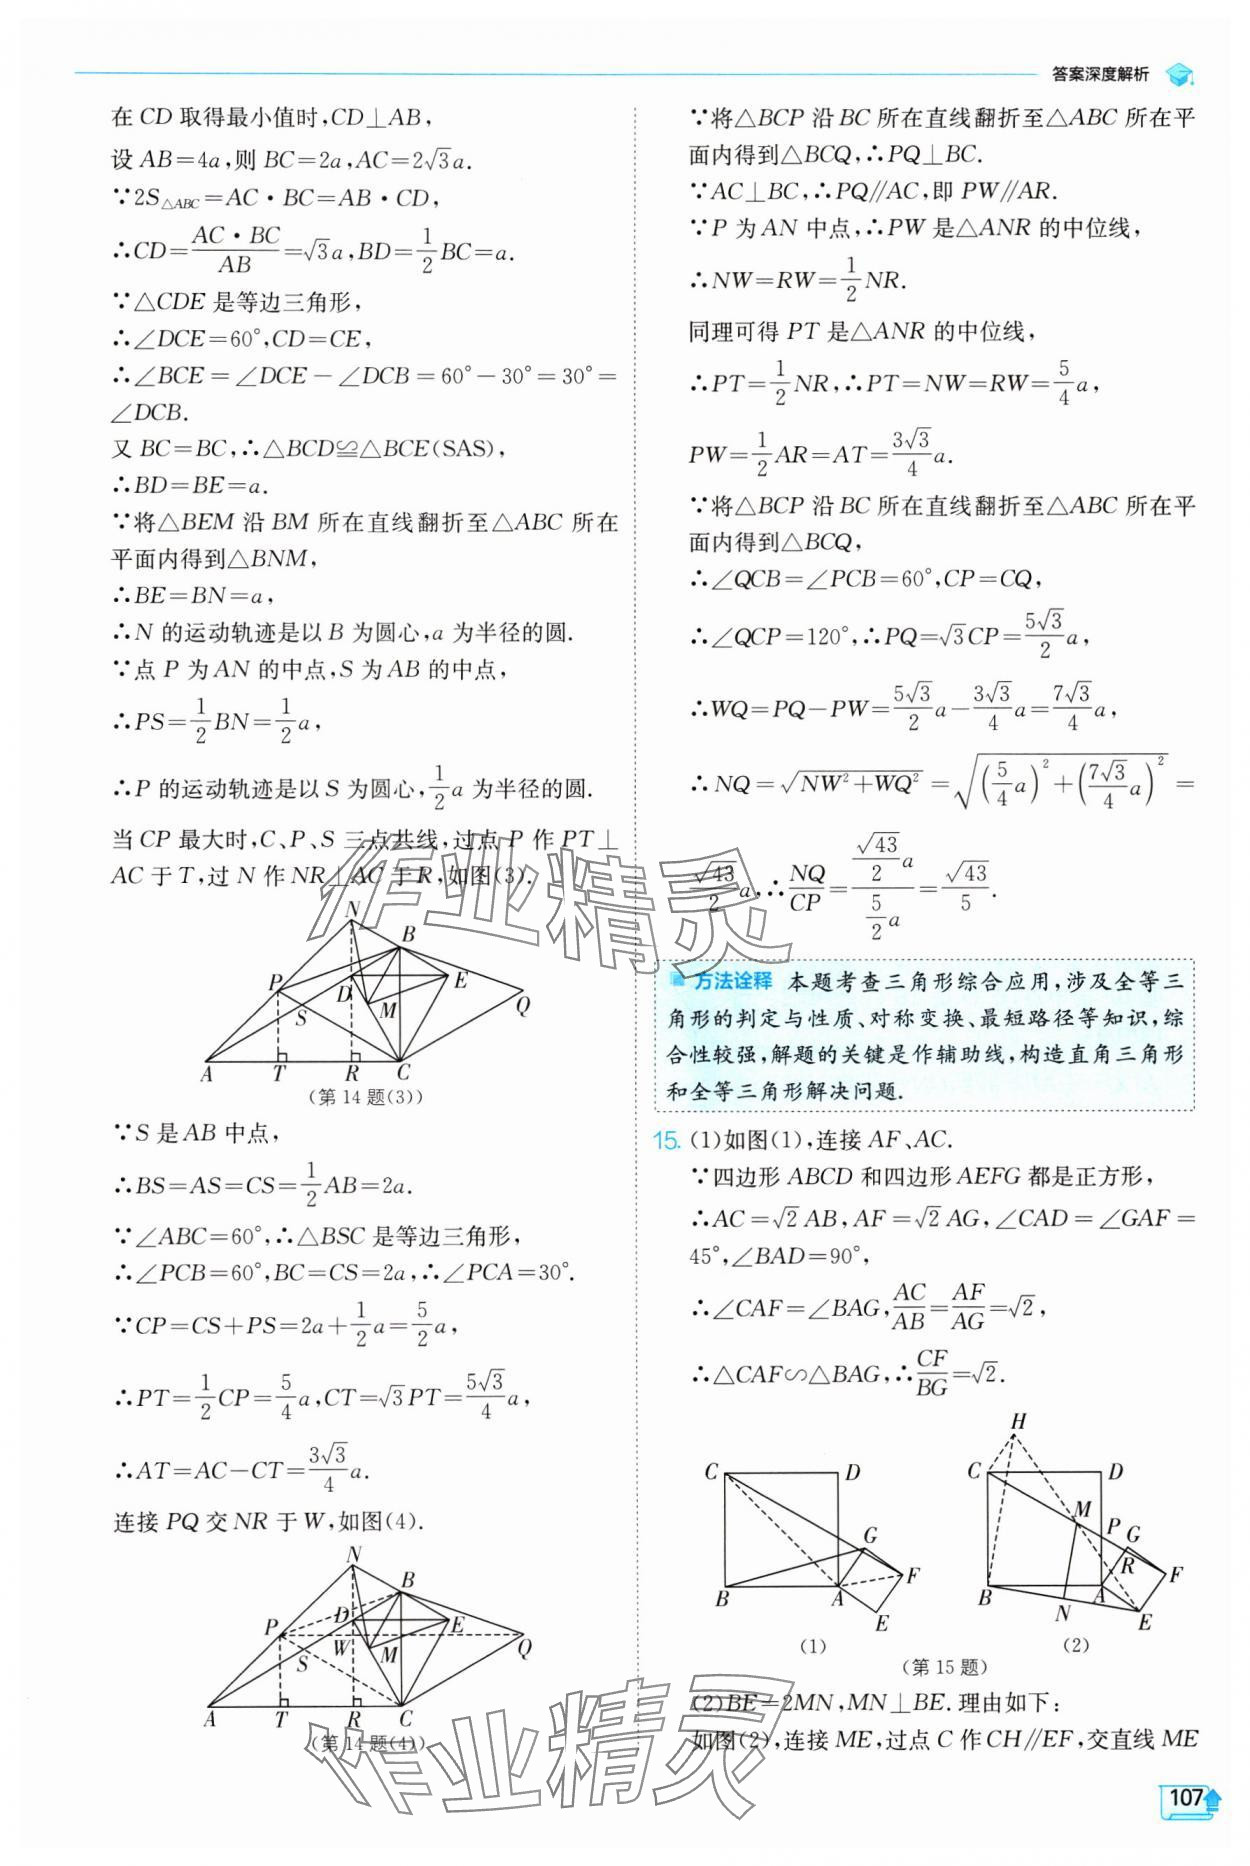 答案深度解析
在 CD 取得最小值时,CD⊥AB,
设 AB=4a,则 BC=2a,AC=2√3a.
∵2S△ABC=AC·BC=AB·CD,
∴CD=AC·BC/AB=√3a,BD=1/2BC=a.
∵△CDE 是等边三角形,
∴∠DCE=60°,CD=CE,
∴∠BCE=∠DCE-∠DCB=60°-30°=30°=
∠DCB.
又 BC=BC,∴△BCD≌△BCE(SAS),
∴BD=BE=a.
∵将△BEM 沿 BM 所在直线翻折至△ABC 所在
平面内得到△BNM,
∴BE=BN=a,
∴N 的运动轨迹是以 B 为圆心,a 为半径的圆.
∵点 P 为 AN 的中点,S 为 AB 的中点,
∴PS=1/2BN=1/2a,
∴P 的运动轨迹是以 S 为圆心,1/2a 为半径的圆.
当 CP 最大时,C、P、S 三点共线,过点 P 作 PT⊥
AC 于 T,过 N 作 NR⊥AC 于 R,如图(3).
N
B
P
D
E
S
M
Q
A
T
R
C
(第 14 题(3))
∵S 是 AB 中点,
∴BS=AS=CS=1/2AB=2a.
∵∠ABC=60°,∴△BSC 是等边三角形,
∴∠PCB=60°,BC=CS=2a,∴∠PCA=30°.
∵CP=CS+PS=2a+1/2a=5/2a,
∴PT=1/2CP=5/4a,CT=√3PT=5√3/4a,
∴AT=AC-CT=3√3/4a.
连接 PQ 交 NR 于 W,如图(4).
N
B
P
D
E
W
Q
S
M
A
T
R
C
(第 14 题(4))
∵将△BCP 沿 BC 所在直线翻折至△ABC 所在平
面内得到△BCQ,∴PQ⊥BC.
∵AC⊥BC,∴PQ∥AC,即 PW∥AR.
∵P 为 AN 中点,∴PW 是△ANR 的中位线,
∴NW=RW=1/2NR.
同理可得 PT 是△ANR 的中位线,
∴PT=1/2NR,∴PT=NW=RW=5/4a,
PW=1/2AR=AT=3√3/4a.
∵将△BCP 沿 BC 所在直线翻折至△ABC 所在平
面内得到△BCQ,
∴∠QCB=∠PCB=60°,CP=CQ,
∴∠QCP=120°,∴PQ=√3CP=5√3/2a,
∴WQ=PQ-PW=5√3/2a-3√3/4a=7√3/4a,
∴NQ=√(NW²+WQ²)=√((5/4a)²+(7√3/4a)²)=
√43/2a,∴NQ/CP=(√43/2a)/(5/2a)=√43/5.
方法诠释 本题考查三角形综合应用,涉及全等三
角形的判定与性质、对称变换、最短路径等知识,综
合性较强,解题的关键是作辅助线,构造直角三角形
和全等三角形解决问题.
15. (1)如图(1),连接 AF、AC.
∵四边形 ABCD 和四边形 AEFG 都是正方形,
∴AC=√2AB,AF=√2AG,∠CAD=∠GAF=
45°,∠BAD=90°,
∴∠CAF=∠BAG,AC/AB=AF/AG=√2,
∴△CAF∽△BAG,∴CF/BG=√2.
C
D
G
F
B
A
E
(1)
H
C
D
M
P
G
R
F
B
A
N
E
(2)
(第 15 题)
(2)BE=2MN,MN⊥BE.理由如下:
如图(2),连接 ME,过点 C 作 CH∥EF,交直线 ME
107
作业精灵
作业精灵